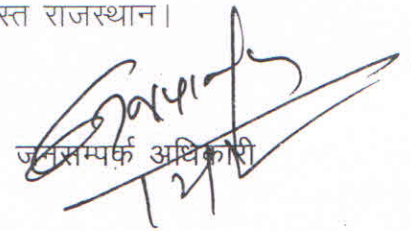 स्त राजस्थान।
जनसम्पर्क अधिकारी